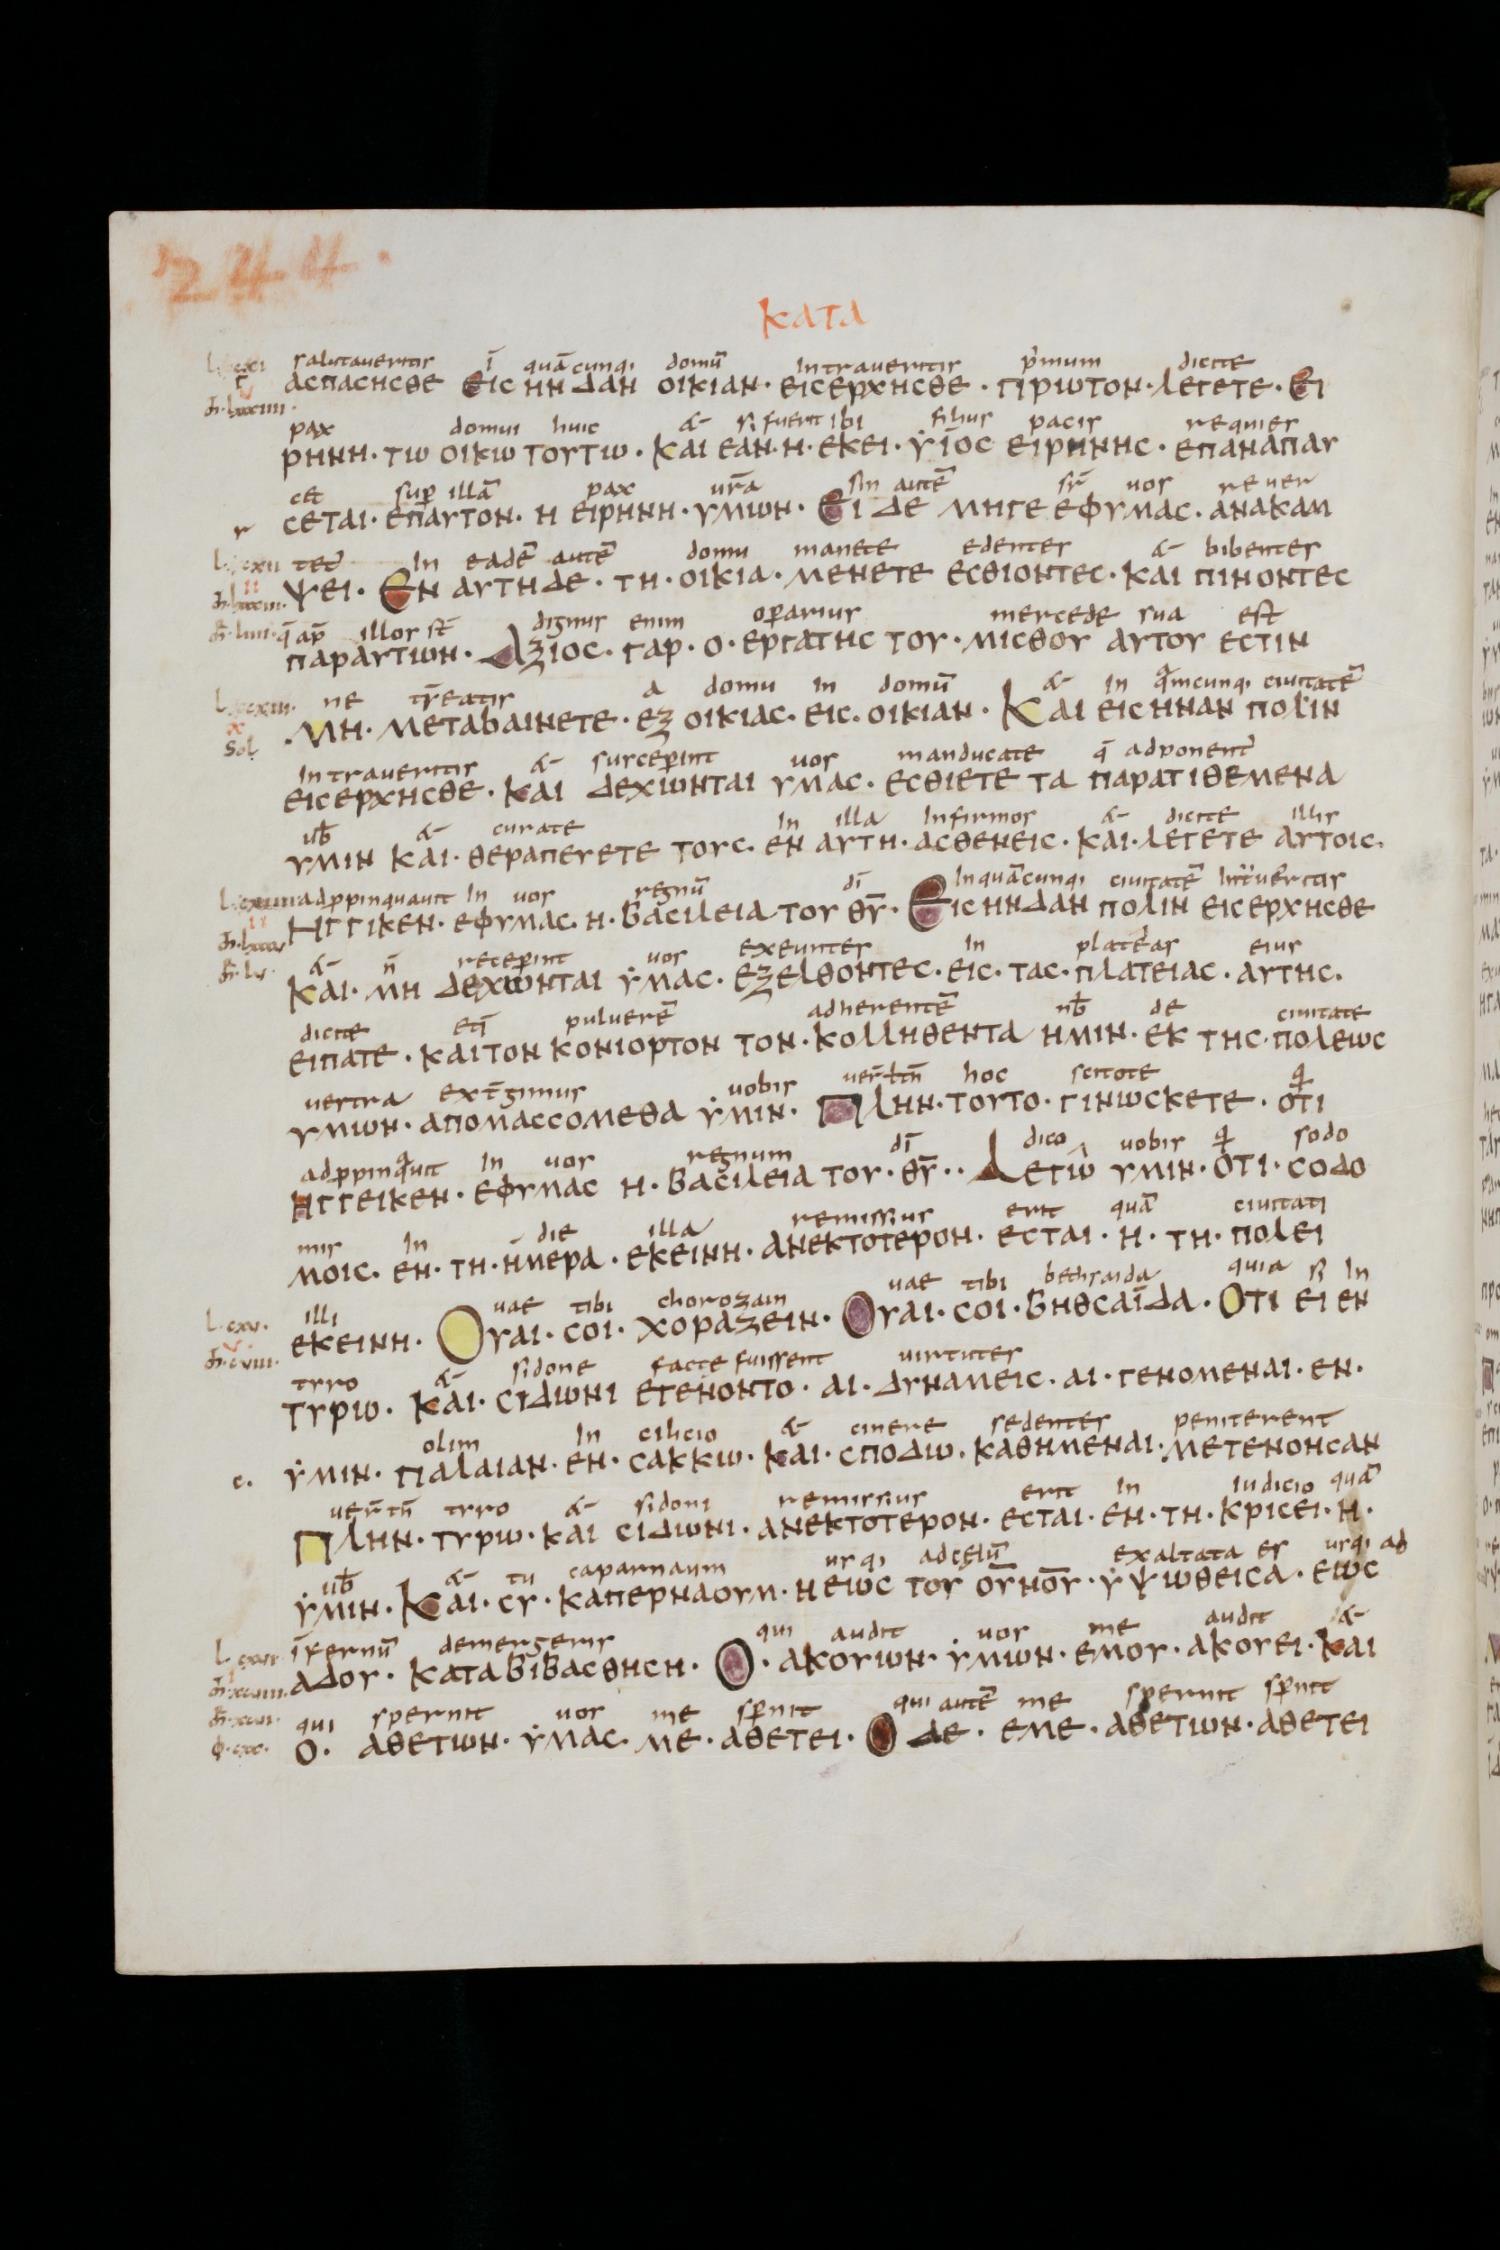 244.
ΚΑΤΑ
salutaueritis ī quācunqi domū Intraueritis pʼmum dicite
ΑCΠΑCΗCΘΕ ΕΙC ΗΝ ΔΑΝ ΟΙΚΙΑΝ· ΕΙCΕΡΧΗCΘΕ· ΠΡΩΤΟΝ· ΛΕΓΕΤΕ· ΕΙ
pax domui huic & si fuerit ibi filius pacis requies
ΡΗΝΗ· ΤΩ ΟΙΚΩ ΤΟΥΤΩ· ΚΑΙ ΕΑΝ· Η· ΕΚΕΙ· ΥΙΟC ΕΙΡΗΝΗC· ΕΠΑΝΑΠΑΥ
cet sup illā pax urā sin autē sr̄ uos reuer
CΕΤΑΙ· ΕΠΑΥΤΟΝ· Η ΕΙΡΗΝΗ· ΥΜΩΝ· ΕΙ ΔΕ ΜΗΓΕ ΕΦΥΜΑC· ΑΝΑΚΑΜ
tet In eadē autē domu manete edentes & bibentes
ΨΕΙ· ΕΝ ΑΥΤΗ ΔΕ· ΤΗ· ΟΙΚΙΑ· ΜΕΝΕΤΕ ΕCΘΙΟΝΤΕC· ΚΑΙ ΠΙΝΟΝΤΕC
q̄ ap̄ illos st̄ dignus enim operarius mercede sua est
ΠΑΡΑΥΤΩΝ· ΑΞΙΟC· ΓΑΡ· Ο· ΕΡΓΑΤΗC ΤΟΥ· ΜΙCΘΟΥ ΑΥΤΟΥ ΕCΤΙΝ
ne tr̄eatis a domu in domū & In q̄mcunqi ciuitatē
ΜΗ· ΜΕΤΑΒΑΙΝΕΤΕ· ΕΞ ΟΙΚΙΑC· ΕΙC· ΟΙΚΙΑΝ· ΚΑΙ ΕΙC ΗΝΑΝ ΠΟΛΙΝ
sol
Intraueritis & susceperint uos manducate q̄ adponent
ΕΙCΕΡΧΗCΘΕ· ΚΑΙ ΔΕΧΩΝΤΑΙ ΥΜΑC· ΕCΘΙΕΤΕ ΤΑ ΠΑΡΑΤΙΘΕΜΕΝΑ
ub̄ & curate In illa Infirmos & dicite illis
ΥΜΙΝ ΚΑΙ· ΘΕΡΑΠΕΥΕΤΕ ΤΟΥC· ΕΝ ΑΥΤΗ· ΑCΘΕΝΕΙC· ΚΑΙ· ΛΕΓΕΤΕ ΑΥΤΟΙC·
adppinquauit In uos regnū dī Inquācunqi ciuitatē Intueritis
ΗΓΓΙΚΕΝ· ΕΦΥΜΑC· Η· ΒΑCΙΛΕΙΑ ΤΟΥ ΘῩ· ΕΙC ΗΝΔΑΝ ΠΟΛΙΝ ΕΙCΕΡΧΗCΘΕ
& n̄ receperint uos exeuntes In plateas eius
ΚΑΙ· ΜΗ ΔΕΧΩΝΤΑΙ ΥΜΑC· ΕΞΕΛΘΟΝΤΕC· ΕΙC· ΤΑC· ΠΛΑΤΕΙΑC· ΑΥΤΗC·
dicite etī puluerē adherentē nb̄ de ciuitate
ΕΙΠΑΤΕ· ΚΑΙ ΤΟΝ ΚΟΝΙΟΡΤΟΝ ΤΟΝ· ΚΟΛΛΗΘΕΝΤΑ ΗΜΙΝ· ΕΚ ΤΗC· ΠΟΛΕΩC
uestra ext̄gimus uobis hoc scitote q
ΥΜΩΝ· ΑΠΟΜΑCCΟΜΕΘΑ ΥΜΙΝ· ΠΛΗΝ· ΤΟΥΤΟ· ΓΙΝΩCΚΕΤΕ· ΟΤΙ
adppinqauit In uos regnum dī dico uobis q sodo
ΗΓΓΕΙΚΕΝ· ΕΦΥΜΑC Η· ΒΑCΙΛΕΙΑ ΤΟΥ· ΘῩ·· ΛΕΓΩ ΥΜΙΝ· ΟΤΙ· CΟΔΟ
mis In die illa remissius erit quā ciuitati
ΜΟΙC· ΕΝ· ΤΗ· ΗΜΕΡΑ· ΕΚΕΙΝΗ· ΑΝΕΚΤΟΤΕΡΟΝ· ΕCΤΑΙ· Η· ΤΗ· ΠΟΛΕΙ
illi uae tibi chorozain uae tibi bethsaida quia si In
ΕΚΕΙΝΗ· ΟΥΑΙ· CΟΙ· ΧΟΡΑΖΕΙΝ· ΟΥΑΙ· CΟΙ· ΒΗΘCΑΪΔΑ· ΟΤΙ ΕΙ ΕΝ
tyro & sidone facte fuissent uirtutes
ΤΥΡΩ· ΚΑΙ· CΙΔΩΝΙ ΕΓΕΝΟΝΤΟ· ΑΙ· ΔΥΝΑΜΕΙC· ΑΙ· ΓΕΝΟΜΕΝΑΙ· ΕΝ·
olim In cilicio & cinere sedentes peniterent
ΥΜΙΝ· ΠΑΛΑΙΑΝ· ΕΝ· CΑΚΚΩ· ΚΑΙ· CΠΟΔΩ· ΚΑΘΗΜΕΝΑΙ· ΜΕΤΕΝΟΗCΑΝ
uer̄tn̄ tyro & sidoni remissius erit In iudicio quā
ΠΛΗΝ· ΤΥΡΩ· ΚΑΙ CΙΔΩΝΙ· ΑΝΕΚΤΟΤΕΡΟΝ· ΕCΤΑΙ· ΕΝ· ΤΗ· ΚΡΙCΕΙ· Η·
ub̄ & tu capharnaum usqi adcelū exaltata es usqi ad
ΥΜΙΝ· ΚΑΙ· CΥ· ΚΑΠΕΡΝΑΟΥΜ· Η ΕΩC ΤΟΥ ΟῩΝΟ̄Υ· ΥΨΩΘΕΙCΑ· ΕΩC
īfernū demergeris qui audit uos me audit &
ΑΔΟΥ· ΚΑΤΑΒΙΒΑCΘΗCΗ· Ο· ΑΚΟΥΩΝ· ΥΜΩΝ· ΕΜΟΥ· ΑΚΟΥΕΙ· ΚΑΙ
qui spernit uos me spnit qui autē me spernit spnit
Ο· ΑΘΕΤΩΝ· ΥΜΑC· ΜΕ· ΑΘΕΤΕΙ· Ο ΔΕ· ΕΜΕ· ΑΘΕΤΩΝ· ΑΘΕΤΕΙ